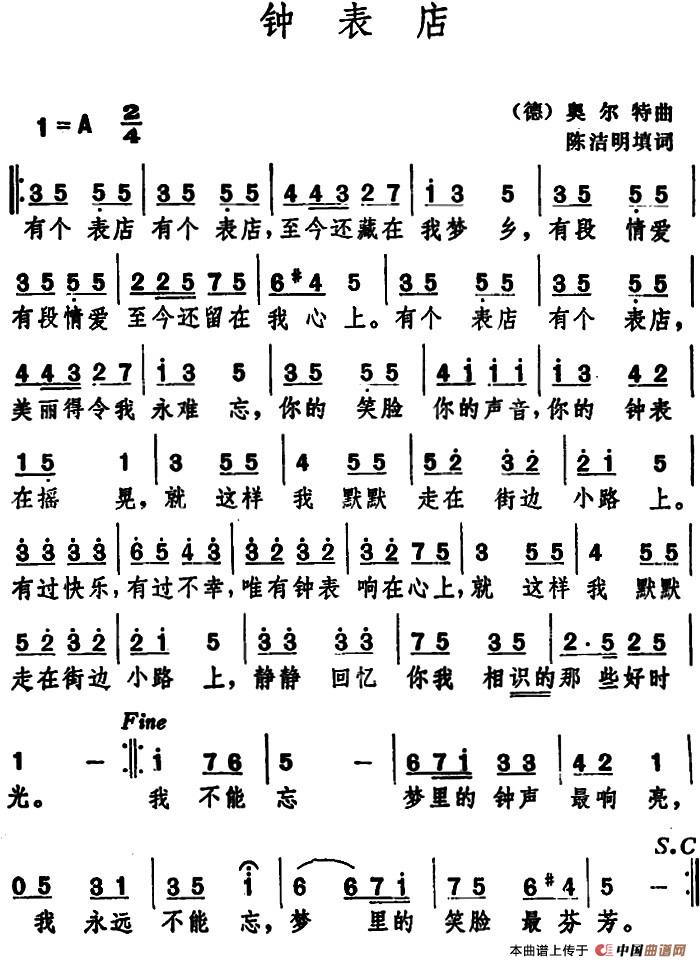 钟表店
1=A 2/4 （德）奥尔特曲
陈洁明填词
35 55 | 35 55 | 443 27 | i3 5 | 35 55
有个 表店 有个 表店，至今还藏在 我梦 乡，有段 情爱
35 55 | 225 75 | 6#4 5 | 35 55 | 35 55
有段情爱 至今还留在 我 心上。有个 表店 有个 表店，
443 27 | i3 5 | 35 55 | 4i ii | i3 42
美丽得令我 永难 忘，你的 笑脸 你的声音，你的 钟表
15 1 | 3 55 | 4 55 | 52 32 | 2i 5
在摇 晃，就 这样 我 默默 走在 街边 小路 上。
33 33 | 65 43 | 32 32 | 32 75 | 3 55 | 4 55
有过快乐，有过不幸，唯有钟表 响在心上，就 这样 我 默默
52 32 | 2i 5 | 3 3 | 33 | 75 35 | 2·5 25
走在街边 小路 上，静静 回忆 你我 相识的那 些好时
Fine
1 － :| i 76 | 5 － | 67i 33 | 42 1
光。 我 不能 忘 梦里的 钟声 最响 亮，
S.C
05 31 | 35 i | 6 67i | 75 6#4 | 5 － :|
我 永远 不能 忘，梦 里的 笑脸 最 芬芳。
本曲谱上传于 中国曲谱网